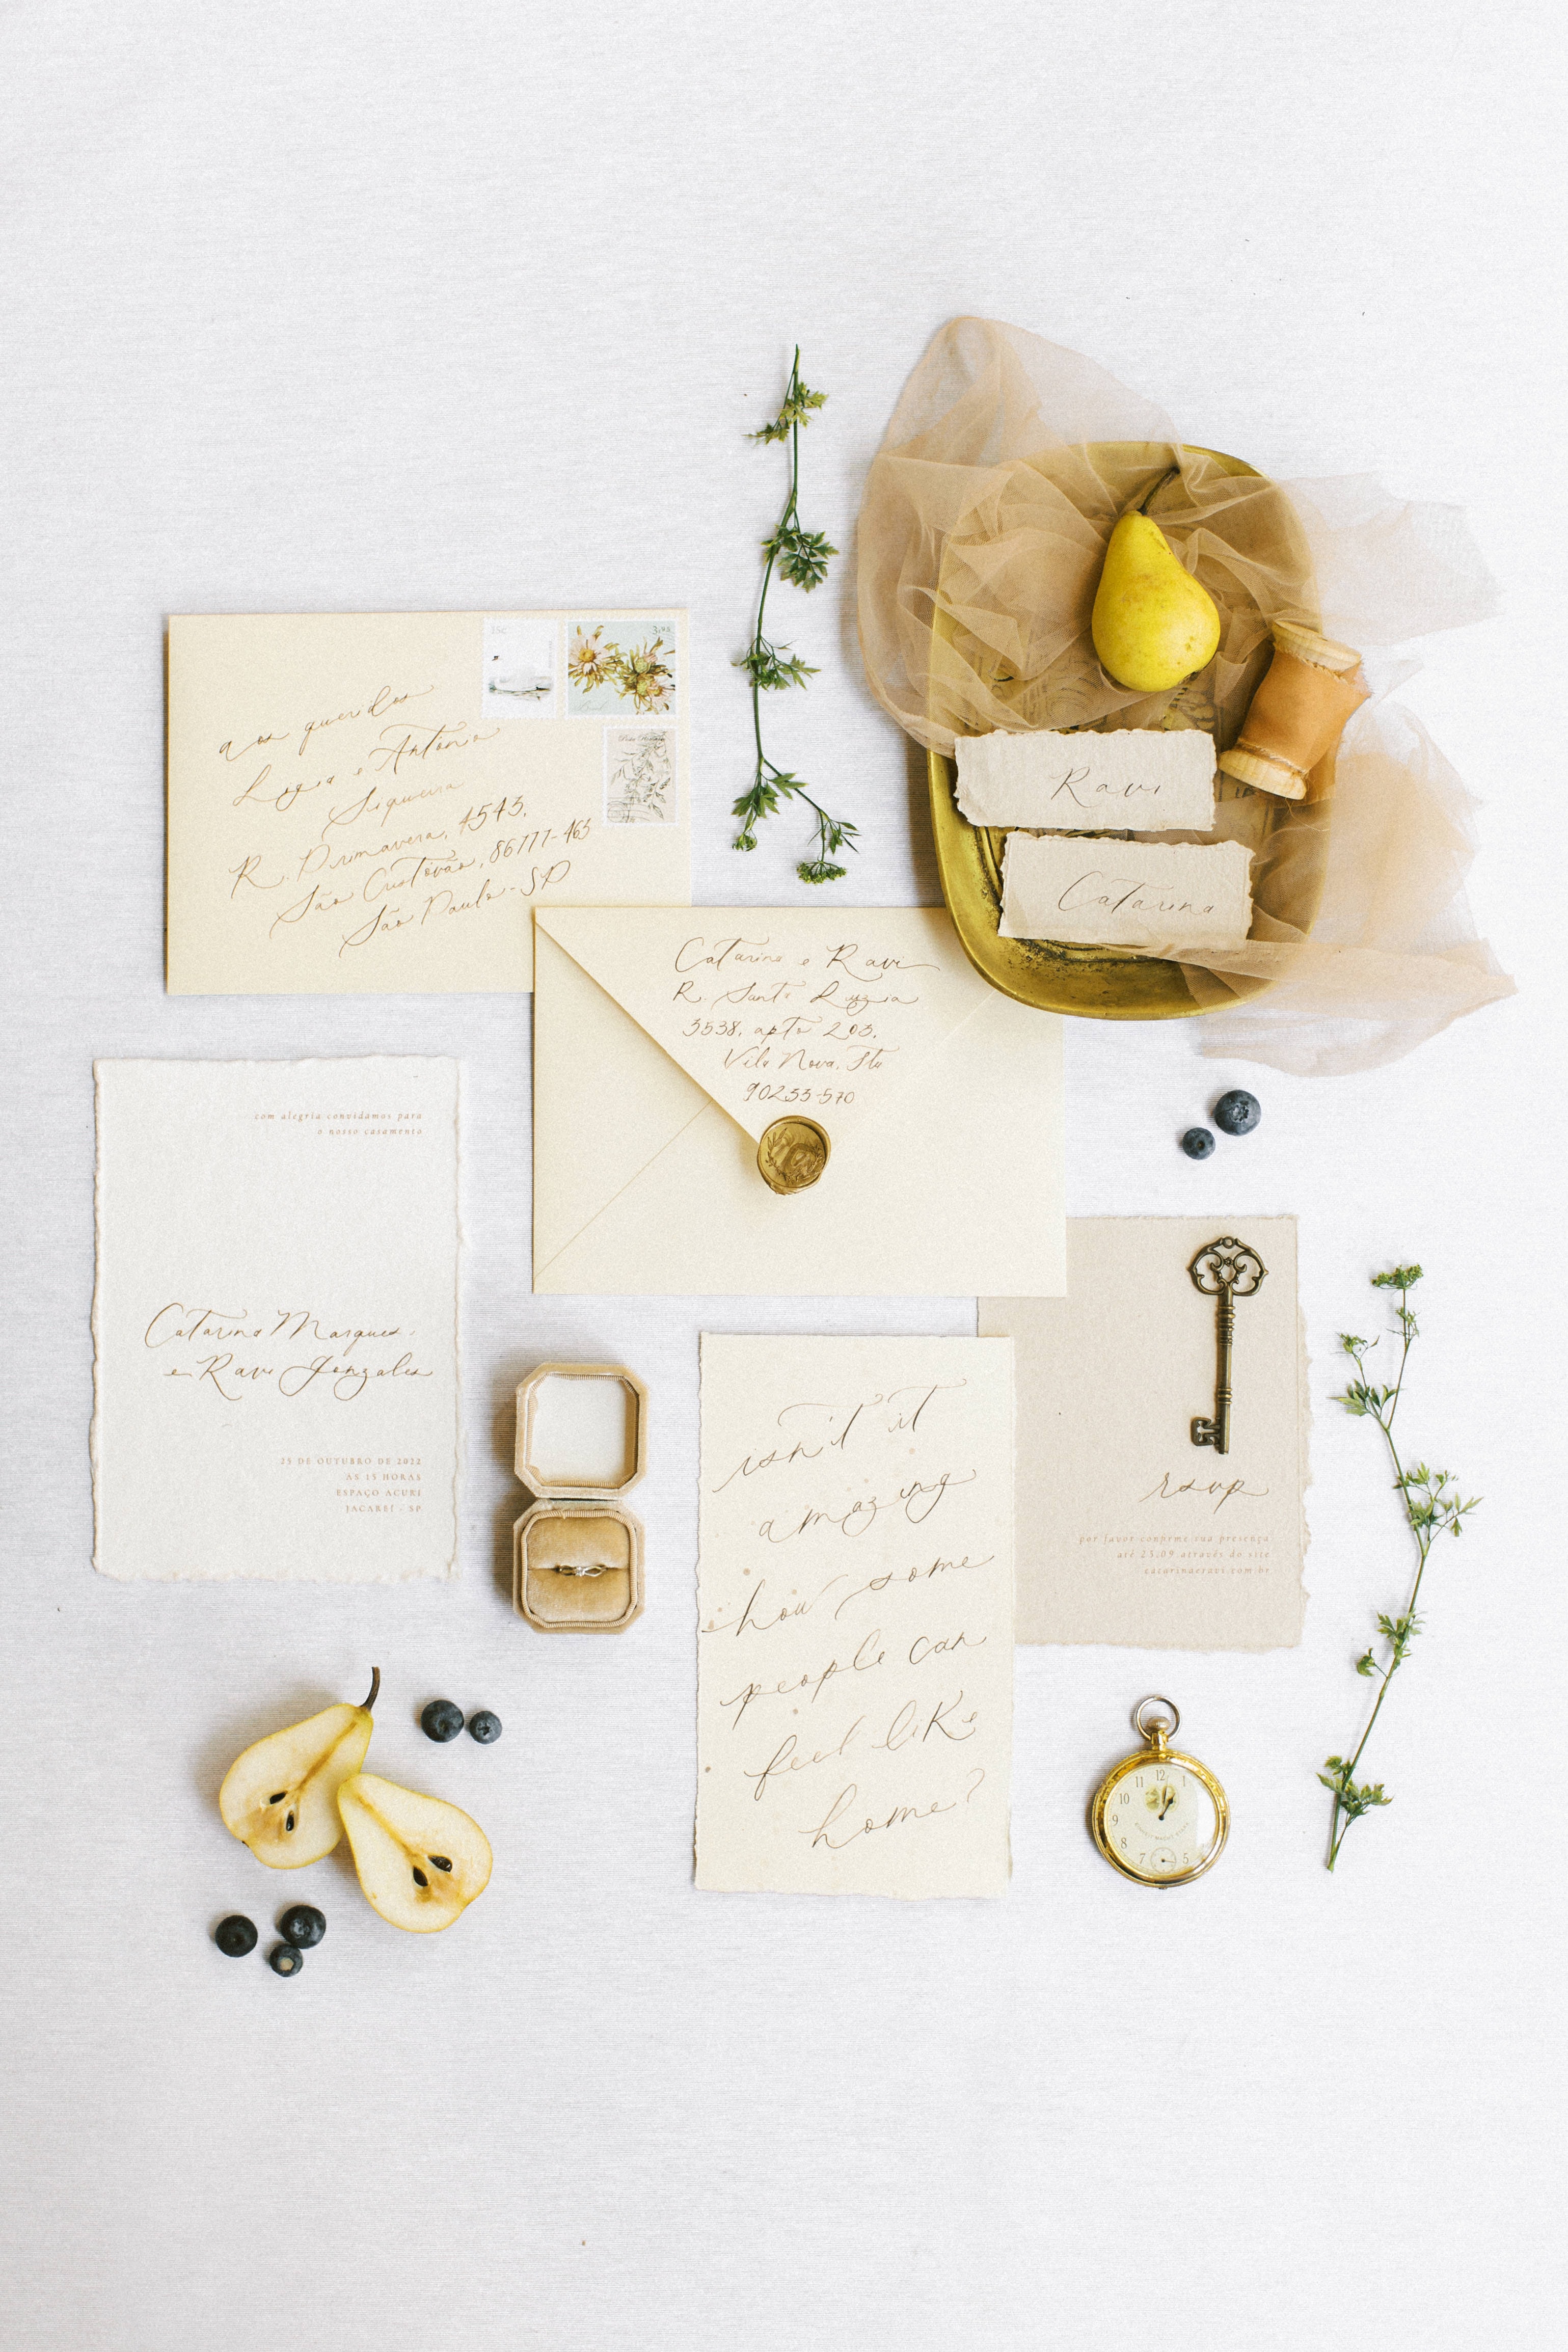 aos queridos
Antonio
Siqueira
R. Primavera, 4543,
São Cristóvão, 86777-463
São Paulo - SP
35c
Catarina e Ravi
R. Santa Luzia
3538, apto 203,
Vila Nova, Sta
90233-570
Ravi
Catarina
com alegria convidamos para
o nosso casamento
Catarina Marques
e Ravi Gonzales
23 DE OUTUBRO DE 2022
ÀS 15 HORAS
ESPAÇO ACURI
JACAREÍ - SP
isn't it
amazing
how some
people can
feel like
home?
rsvp
por favor confirme sua presença
até 23.09 através do site
catarinaeravi.com.br
11 12 1
10
9
8
7 5